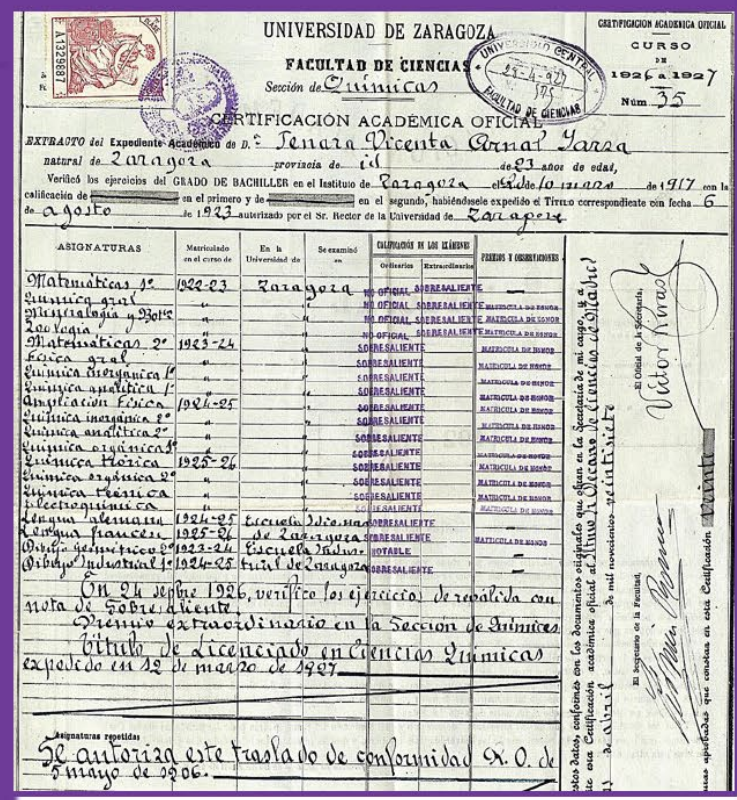 UNIVERSIDAD DE ZARAGOZA
FACULTAD DE CIENCIAS
Sección de Químicas
CERTIFICACION ACADEMICA OFICIAL
CURSO
DE
1926 a 1927
Núm. 35
A1329887
UNIVERSIDAD CENTRAL
FACULTAD DE CIENCIAS
CERTIFICACIÓN ACADÉMICA OFICIAL
EXTRACTO del Expediente Académico de D.ª Jenara Vicenta Arnal Yarza
natural de Zaragoza provincia de id de 23 años de edad,
Verificó los ejercicios del GRADO DE BACHILLER en el Instituto de Zaragoza de 1917 con la
calificación de en el primero y de en el segundo, habiéndosele expedido el TÍTULO correspondiente con fecha 6
de agosto de 1923 autorizado por el Sr. Rector de la Universidad de Zaragoza
ASIGNATURAS Matriculado en el curso de En la Universidad de Se examinó en CALIFICACIÓN DE LOS EXÁMENES Ordinarios Extraordinarios PREMIOS Y OBSERVACIONES
Matemáticas 1º 1922-23 Zaragoza NO OFICIAL SOBRESALIENTE —
Química gral " " NO OFICIAL SOBRESALIENTE MATRICULA DE HONOR
Mineralogía y Botª " " NO OFICIAL SOBRESALIENTE MATRICULA DE HONOR
Zoología " " NO OFICIAL SOBRESALIENTE MATRICULA DE HONOR
Matemáticas 2º 1923-24 " SOBRESALIENTE MATRICULA DE HONOR
Física gral " " SOBRESALIENTE MATRICULA DE HONOR
Química inorgánica 1º " " SOBRESALIENTE MATRICULA DE HONOR
Química analítica 1º " " SOBRESALIENTE MATRICULA DE HONOR
Ampliación Física 1924-25 " SOBRESALIENTE MATRICULA DE HONOR
Química inorgánica 2º " " SOBRESALIENTE MATRICULA DE HONOR
Química analítica 2º " " SOBRESALIENTE MATRICULA DE HONOR
Química orgánica 1º " " SOBRESALIENTE MATRICULA DE HONOR
Química teórica 1925-26 " SOBRESALIENTE MATRICULA DE HONOR
Química orgánica 2º " " SOBRESALIENTE MATRICULA DE HONOR
Química técnica " " SOBRESALIENTE MATRICULA DE HONOR
Electroquímica " " SOBRESALIENTE MATRICULA DE HONOR
Lengua alemana 1924-25 Escuela Idiomas SOBRESALIENTE —
Lengua francesa 1925-26 de Zaragoza SOBRESALIENTE MATRICULA DE HONOR
Dibujo geométrico 2º 1923-24 Escuela Indus- NOTABLE —
Dibujo Industrial 1º 1924-25 trial de Zaragoza SOBRESALIENTE —
En 24 sepbre 1926, verificó los ejercicios de reválida con
nota de Sobresaliente.
Premio extraordinario en la Sección de Químicas
Título de Licenciado en Ciencias Químicas
expedido en 12 de marzo de 1927
Asignaturas repetidas
Se autoriza este traslado de conformidad R. O. de
5 mayo de 1906.
estos datos, conformes con los documentos originales que obran en la Secretaría de mi cargo, y a
esta Certificación académica oficial al Ilmo Sr Decano de Ciencias de Madrid
de abril de mil novecientos veintisiete
El Secretario de la Facultad,
El Oficial de la Secretaría,
Victor Rivas
aprobadas que constan en esta Certificación Veinte